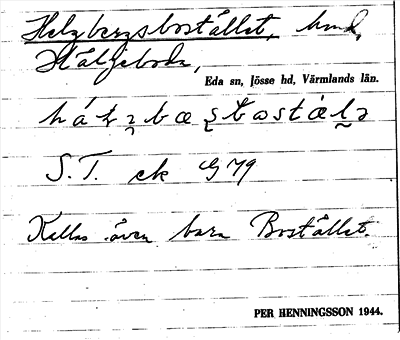 Helgbergsbostället, hmd,
Häljeboda,
Eda sn, Jösse hd, Värmlands län.
S. T. ek G 79
Kallas även bara Bostället.
PER HENNINGSSON 1944.